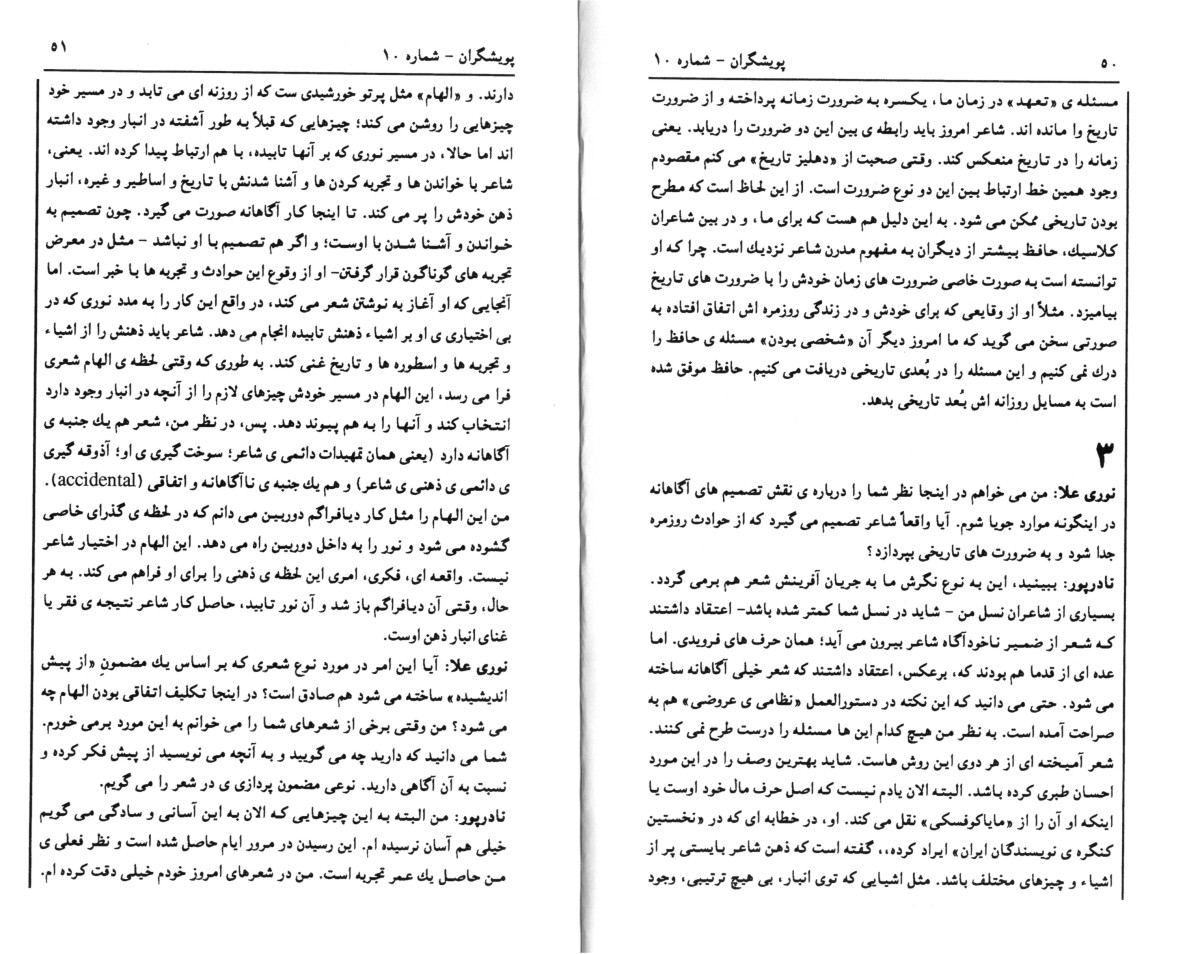 ۵۰ پویشگران - شماره ۱۰
مسئله ی «تعهد» در زمان ما، یکسره به ضرورت زمانه پرداخته و از ضرورت
تاریخ وا مانده اند. شاعر امروز باید رابطه ی بین این دو ضرورت را دریابد. یعنی
زمانه را در تاریخ منعکس کند. وقتی صحبت از «دهلیز تاریخ» می کنم مقصودم
وجود همین خط ارتباط بین این دو نوع ضرورت است. از این لحاظ است که مطرح
بودن تاریخی ممکن می شود. به این دلیل هم هست که برای ما، و در بین شاعران
کلاسیك، حافظ بیشتر از دیگران به مفهوم مدرن شاعر نزدیك است. چرا که او
توانسته است به صورت خاصی ضرورت های زمان خودش را با ضرورت های تاریخ
بیامیزد. مثلاً او از وقایعی که برای خودش و در زندگی روزمره اش اتفاق افتاده به
صورتی سخن می گوید که ما امروز دیگر آن «شخصی بودن» مسئله ی حافظ را
درك نمی کنیم و این مسئله را در بُعدی تاریخی دریافت می کنیم. حافظ موفق شده
است به مسایل روزانه اش بُعد تاریخی بدهد.
۳
نوری علا: من می خواهم در اینجا نظر شما را درباره ی نقش تصمیم های آگاهانه
در اینگونه موارد جویا شوم. آیا واقعاً شاعر تصمیم می گیرد که از حوادث روزمره
جدا شود و به ضرورت های تاریخی بپردازد؟
نادرپور: ببینید، این به نوع نگرش ما به جریان آفرینش شعر هم برمی گردد.
بسیاری از شاعران نسل من - شاید در نسل شما کمتر شده باشد- اعتقاد داشتند
که شعر از ضمیر ناخودآگاه شاعر بیرون می آید؛ همان حرف های فرویدی. اما
عده ای از قدما هم بودند که، برعکس، اعتقاد داشتند که شعر خیلی آگاهانه ساخته
می شود. حتی می دانید که این نکته در دستورالعمل «نظامی ی عروضی» هم به
صراحت آمده است. به نظر من هیچ کدام این ها مسئله را درست طرح نمی کنند.
شعر آمیخته ای از هر دوی این روش هاست. شاید بهترین وصف را در این مورد
احسان طبری کرده باشد. البته الان یادم نیست که اصل حرف مال خود اوست یا
اینکه او آن را از «مایاکوفسکی» نقل می کند. او، در خطابه ای که در «نخستین
کنگره ی نویسندگان ایران» ایراد کرده،، گفته است که ذهن شاعر بایستی پر از
اشیاء و چیزهای مختلف باشد. مثل اشیایی که توی انبار، بی هیچ ترتیبی، وجود
پویشگران - شماره ۱۰ ۵۱
دارند. و «الهام» مثل پرتو خورشیدی ست که از روزنه ای می تابد و در مسیر خود
چیزهایی را روشن می کند؛ چیزهایی که قبلاً به طور آشفته در انبار وجود داشته
اند اما حالا، در مسیر نوری که بر آنها تابیده، با هم ارتباط پیدا کرده اند. یعنی،
شاعر با خواندن ها و تجربه کردن ها و آشنا شدنش با تاریخ و اساطیر و غیره، انبار
ذهن خودش را پر می کند. تا اینجا کار آگاهانه صورت می گیرد. چون تصمیم به
خواندن و آشنا شدن با اوست؛ و اگر هم تصمیم با او نباشد - مثل در معرض
تجربه های گوناگون قرار گرفتن- او از وقوع این حوادث و تجربه ها با خبر است. اما
آنجایی که او آغاز به نوشتن شعر می کند، در واقع این کار را به مدد نوری که در
بی اختیاری ی او بر اشیاء ذهنش تابیده انجام می دهد. شاعر باید ذهنش را از اشیاء
و تجربه ها و اسطوره ها و تاریخ غنی کند. به طوری که وقتی لحظه ی الهام شعری
فرا می رسد، این الهام در مسیر خودش چیزهای لازم را از آنچه در انبار وجود دارد
انتخاب کند و آنها را به هم پیوند دهد. پس، در نظر من، شعر هم یك جنبه ی
آگاهانه دارد (یعنی همان تمهیدات دائمی ی شاعر؛ سوخت گیری ی او؛ آذوقه گیری
ی دائمی ی ذهنی ی شاعر) و هم یك جنبه ی ناآگاهانه و اتفاقی (accidental).
من این الهام را مثل کار دیافراگم دوربین می دانم که در لحظه ی گذرای خاصی
گشوده می شود و نور را به داخل دوربین راه می دهد. این الهام در اختیار شاعر
نیست. واقعه ای، فکری، امری این لحظه ی ذهنی را برای او فراهم می کند. به هر
حال، وقتی آن دیافراگم باز شد و آن نور تابید، حاصل کار شاعر نتیجه ی فقر یا
غنای انبار ذهن اوست.
نوری علا: آیا این امر در مورد نوع شعری که بر اساس یك مضمونِ «از پیش
اندیشیده» ساخته می شود هم صادق است؟ در اینجا تکلیف اتفاقی بودن الهام چه
می شود؟ من وقتی برخی از شعرهای شما را می خوانم به این مورد برمی خورم.
شما می دانید که دارید چه می گویید و به آنچه می نویسید از پیش فکر کرده و
نسبت به آن آگاهی دارید. نوعی مضمون پردازی ی در شعر را می گویم.
نادرپور: من البته به این چیزهایی که الان به این آسانی و سادگی می گویم
خیلی هم آسان نرسیده ام. این رسیدن در مرور ایام حاصل شده است و نظر فعلی ی
من حاصل یك عمر تجربه است. من در شعرهای امروز خودم خیلی دقت کرده ام.